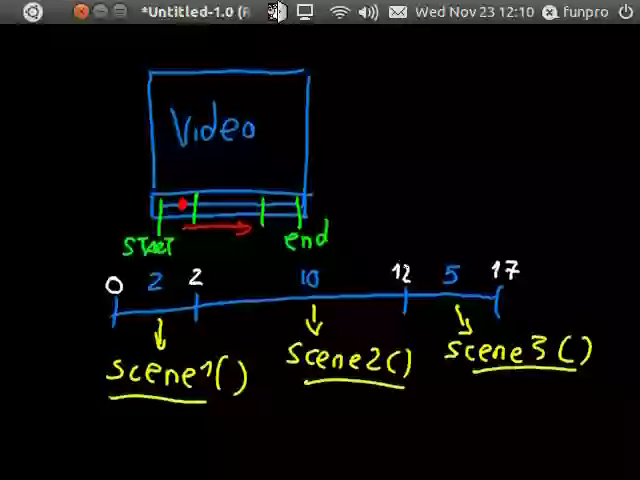 *Untitled-1.0 (R
Wed Nov 23 12:10
funpro
Video
start
end
0 2 2 10 12 5 17
scene1()
scene2()
scene3()